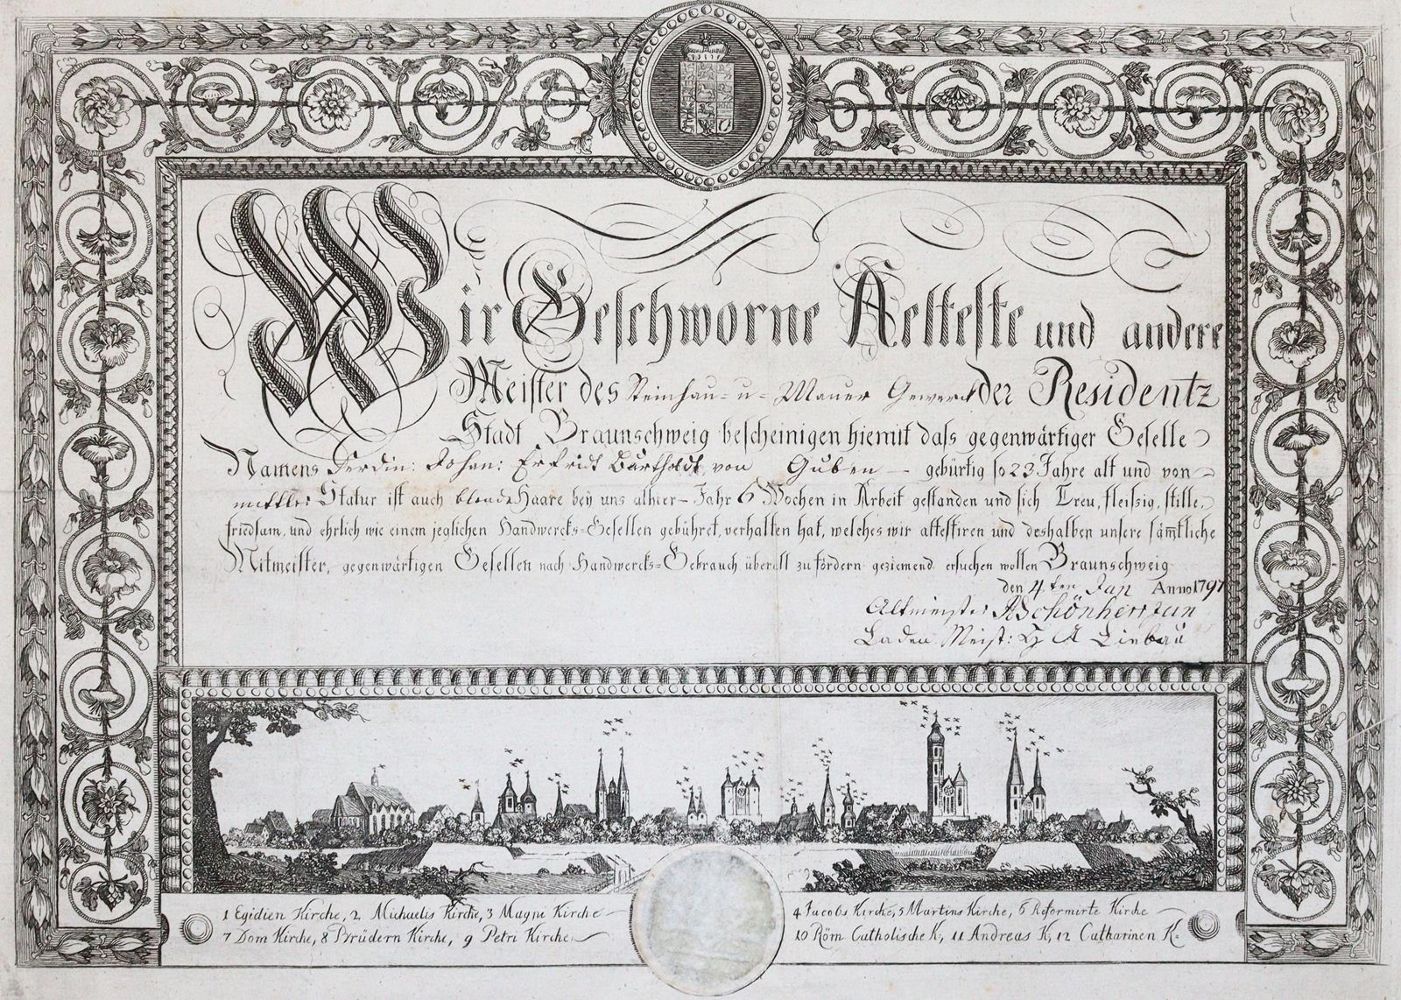 Wir Geschworne Aelteste und andere
Meister des Steinhau- u- Mauer Gewerck der Residentz
Stadt Braunschweig bescheinigen hiemit dass gegenwärtiger Geselle
Namens Ferdin: Johan: Erfridt Burtholdt von Guben – gebürtig so 23 Jahre alt und von
mittler Statur ist auch blonde Haare bey uns alhier – Jahr 6 Wochen in Arbeit gestanden und sich Treu, fleissig, stille,
friedsam, und ehrlich wie einem jeglichen Handwercks-Gesellen gebühret, verhalten hat, welches wir attestiren und deshalben unsere sām̄tliche
Mitmeister, gegenwärtigen Gesellen nach Handwercks-Gebrauch überall zu fördern geziemend ersuchen wollen Braunschweig
den 4 ten Jan Anno 1797
Altmeister Schönherr
Laden Meist: Liebau
1 Egidien Kirche, 2. Michaelis Kirche, 3 Magni Kirche
4 Jacobs Kirche, 5 Martins Kirche, 6 Reformirte Kirche
7 Dom Kirche, 8 Brüdern Kirche, 9 Petri Kirche
10 Röm Catholische K, 11 Andreas K, 12 Catharinen K.